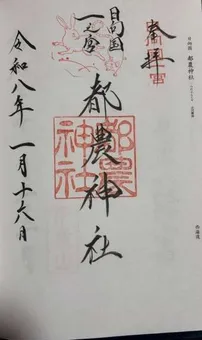 奉拝
日向国
一之宮
都農神社
都農
神社
令和八年 一月十六日
日向国 都農神社